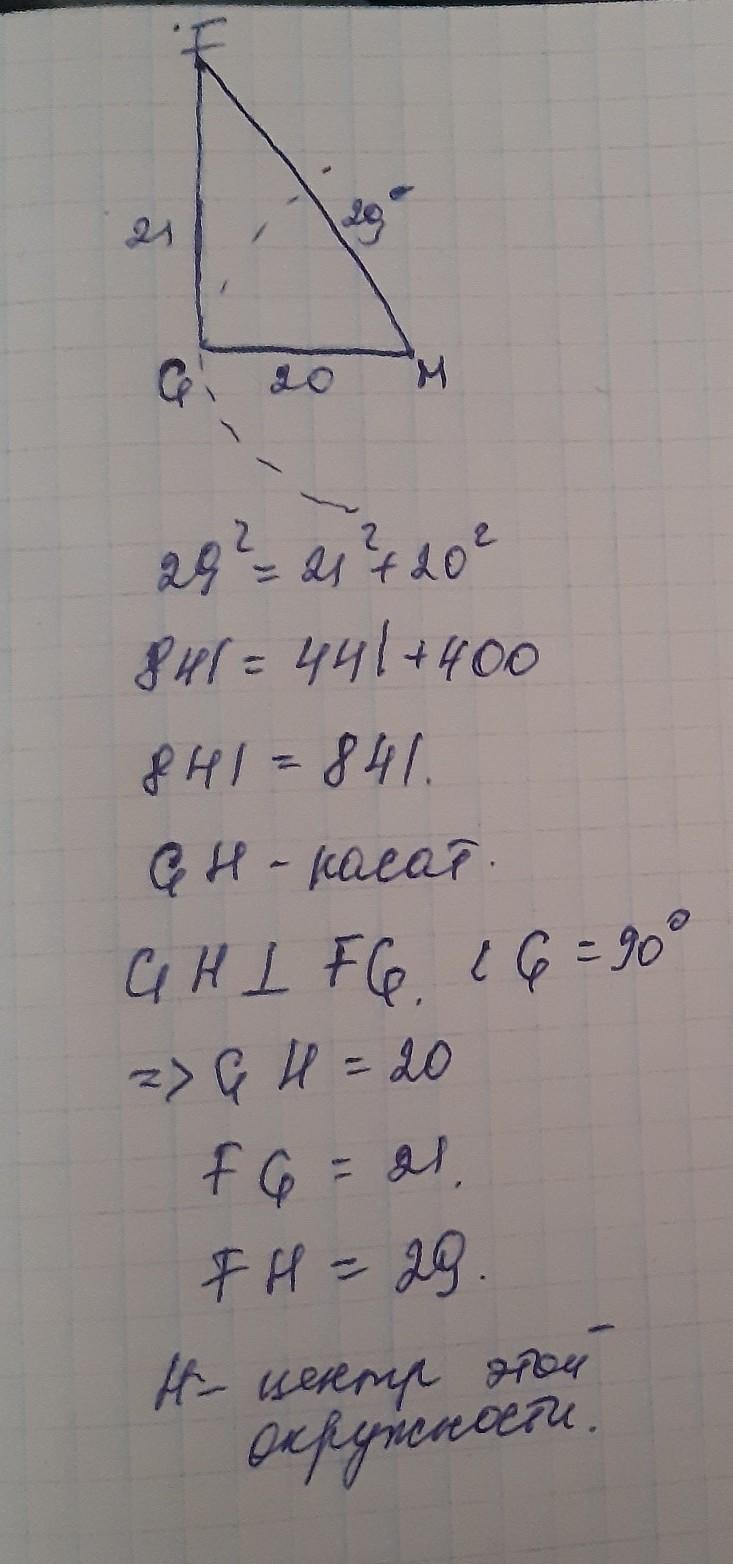 F
21
29
G
20
H
29² = 21² + 20²
841 = 441 + 400
841 = 841.
GH - касат.
GH ⊥ FG. ∠ G = 90°
=> GH = 20
FG = 21.
FH = 29.
H - центр этой
окружности.